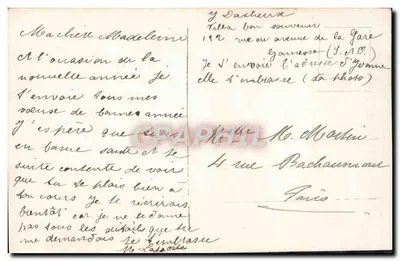 Ma chère Madeleine
et l'occasion de la
nouvelle année je
t'envoie tous mes
vœux de bonne année
j'espère que tu es
en bonne santé et je
suis contente de voir
que tu te plais bien a
ton cours je te
bientôt car je ne te donne
pas tous les détails que tu
me demandais je t'embrasse
Villa bon souvenir
192 rue ou avenue de la Gare
(S.-&-O.)
Je t'envoie l'adresse d'Yvonne
elle t'embrasse (La photo)
CPAPHIL
Melle M. Martin
4 rue Bachaumont
Paris